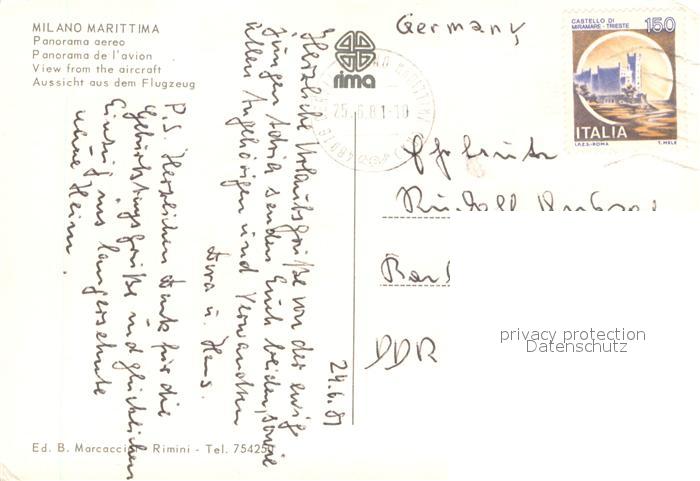 MILANO MARITTIMA
Panorama aereo
Panorama de l'avion
View from the aircraft
Aussicht aus dem Flugzeug
rima
25.6.81-10
Germany
CASTELLO DI
MIRAMARE - TRIESTE
150
ITALIA
I.P.Z.S.-ROMA
T. MELE
24.6.81
Herzliche Urlaubsgrüße von der ewig
jungen Adria senden Euch beiden, sowie
allen Angehörigen und Verwandten
Dora u. Hans.
P.S. Herzlichen Dank für die
Geburtstagsgrüße und glücklichen
Einzug ins langersehnte
neue Heim.
Rudolf
DDR
privacy protection
Datenschutz
Ed. B. Marcacci - Rimini - Tel. 75425